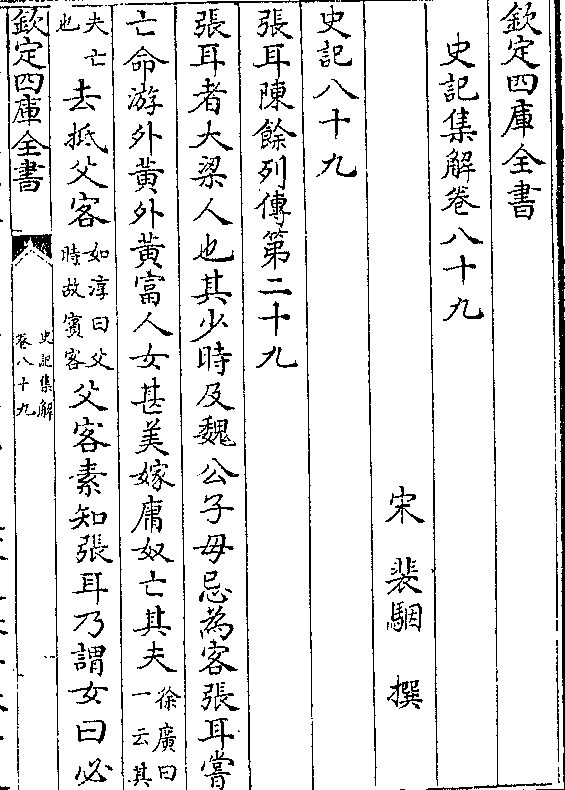 欽定四庫全書
史記集解卷八十九
宋 裴駰 撰
史記八十九
張耳陳餘列傳第二十九
張耳者大梁人也其少時及魏公子毋忌為客張耳嘗
亡命游外黃外黃富人女甚美嫁庸奴亡其夫徐廣曰一云其
夫亡也去抵父客如淳曰父時故賓客父客素知張耳乃謂女曰必
欽定四庫全書
史記集解
卷八十九